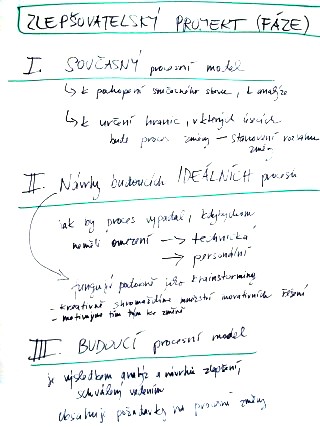 ZLEPŠOVATELSKÝ PROJEKT (FÁZE)
I. SOUČASNÝ procesní model
↳ k pochopení současného stavu, k analýze
↳ k určení hranic, v kterých úsecích
bude proces změny – stanovení rozsahu
změny
II. Návrhy budoucích IDEÁLNÍCH procesů
jak by proces vypadal, kdybychom
neměli omezení → technická
→ personální
fungují podobně jako brainstorming
- kreativně shromáždíme množství inovativních řešení
- motivujeme tím tým ke změně
III. BUDOUCÍ procesní model
je výsledkem analýz a návrhů zlepšení,
schválený vedením
obsahuje požadavky na procesní změny